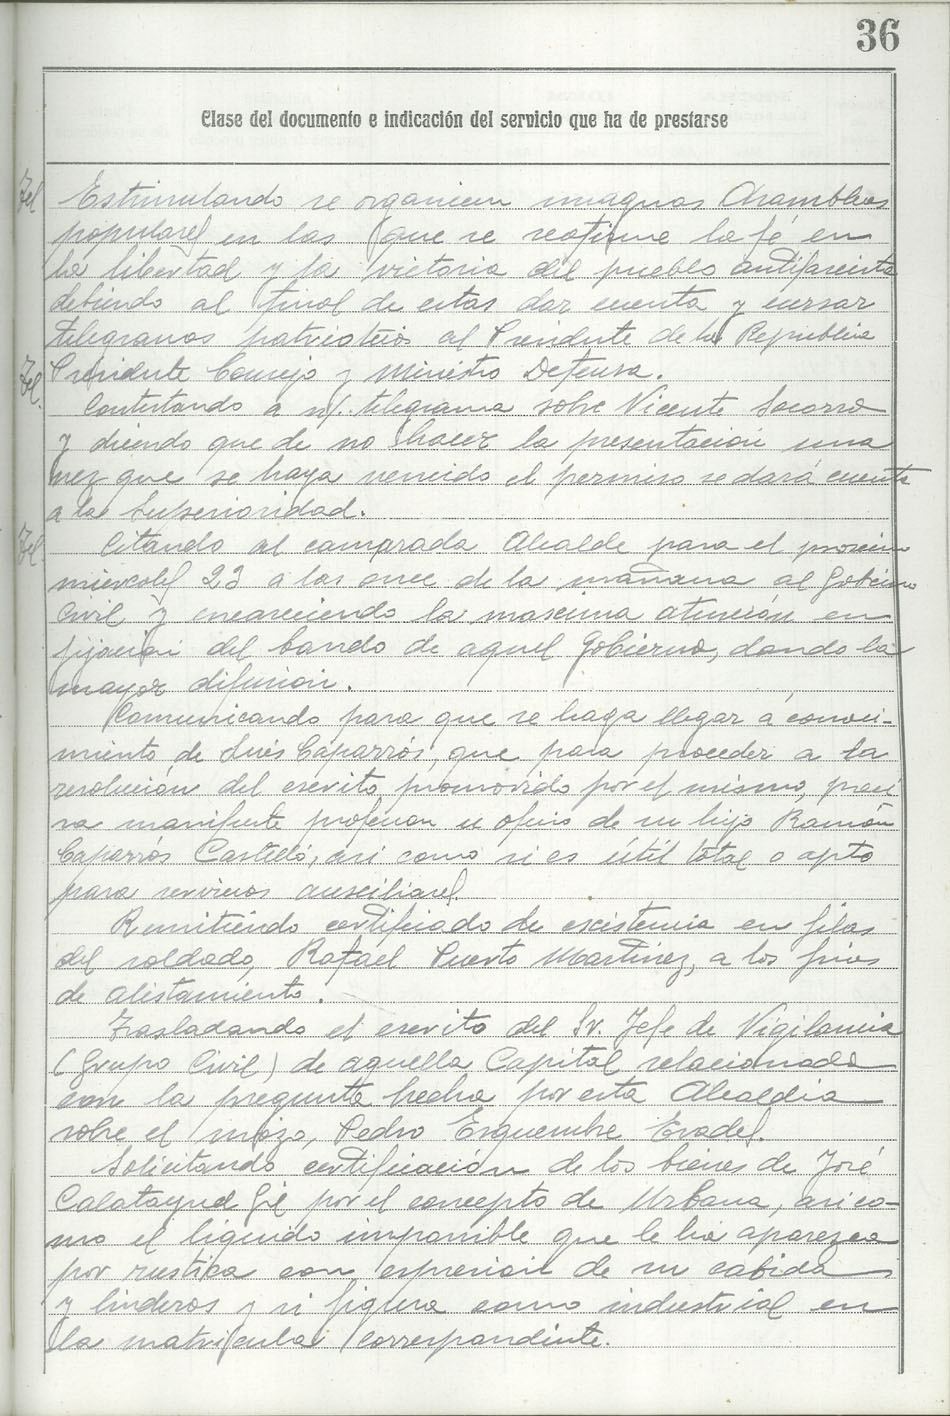 36
Clase del documento e indicación del servicio que ha de prestarse
Tel Estimulando se organicen magnas Asambleas
populares en las que se reafirme la fé en
la libertad y la victoria del pueblo antifascista
debiendo al final de estas dar cuenta y cursar
telegramas patrioticos al Presidente de la Republica
Tel. Presidente Consejo y Ministro Defensa.
Contestando a n/. telegrama sobre Vicente Socorro
y diciendo que de no hacer la presentación una
vez que se haya vencido el permiso se dará cuenta
a la Superioridad.
Tel. Citando al camarada Alcalde para el proximo
miercoles 23 a las once de la mañana al Gobierno
Civil y encareciendo la maxima atención en
fijación del bando de aquel Gobierno, dando la
mayor difusion.
Comunicando para que se haga llegar á conoci-
miento de Luis Caparrós, que para proceder a la
resolución del escrito promovido por el mismo, preci
sa manifieste profesion u oficio de su hijo Ramón
Caparrós Castelló, asi como si es útil total o apto
para servicios auxiliares.
Remitiendo certificado de existencia en filas
del soldado, Rafael Puerto Martinez, a los fines
de alistamiento.
Trasladando el escrito del Sr. Jefe de Vigilancia
(Grupo Civil) de aquella Capital relacionado
con la pregunta hecha por esta Alcaldia
sobre el mozo, Pedro Esquembre
Solicitando certificación de los bienes de José
Calatayud Gil por el concepto de Urbana, asi co-
mo el liquido imponible que le aparezca
por rustica con expresion de su cabida
y linderos y si figura como industrial en
la matricula correspondiente.